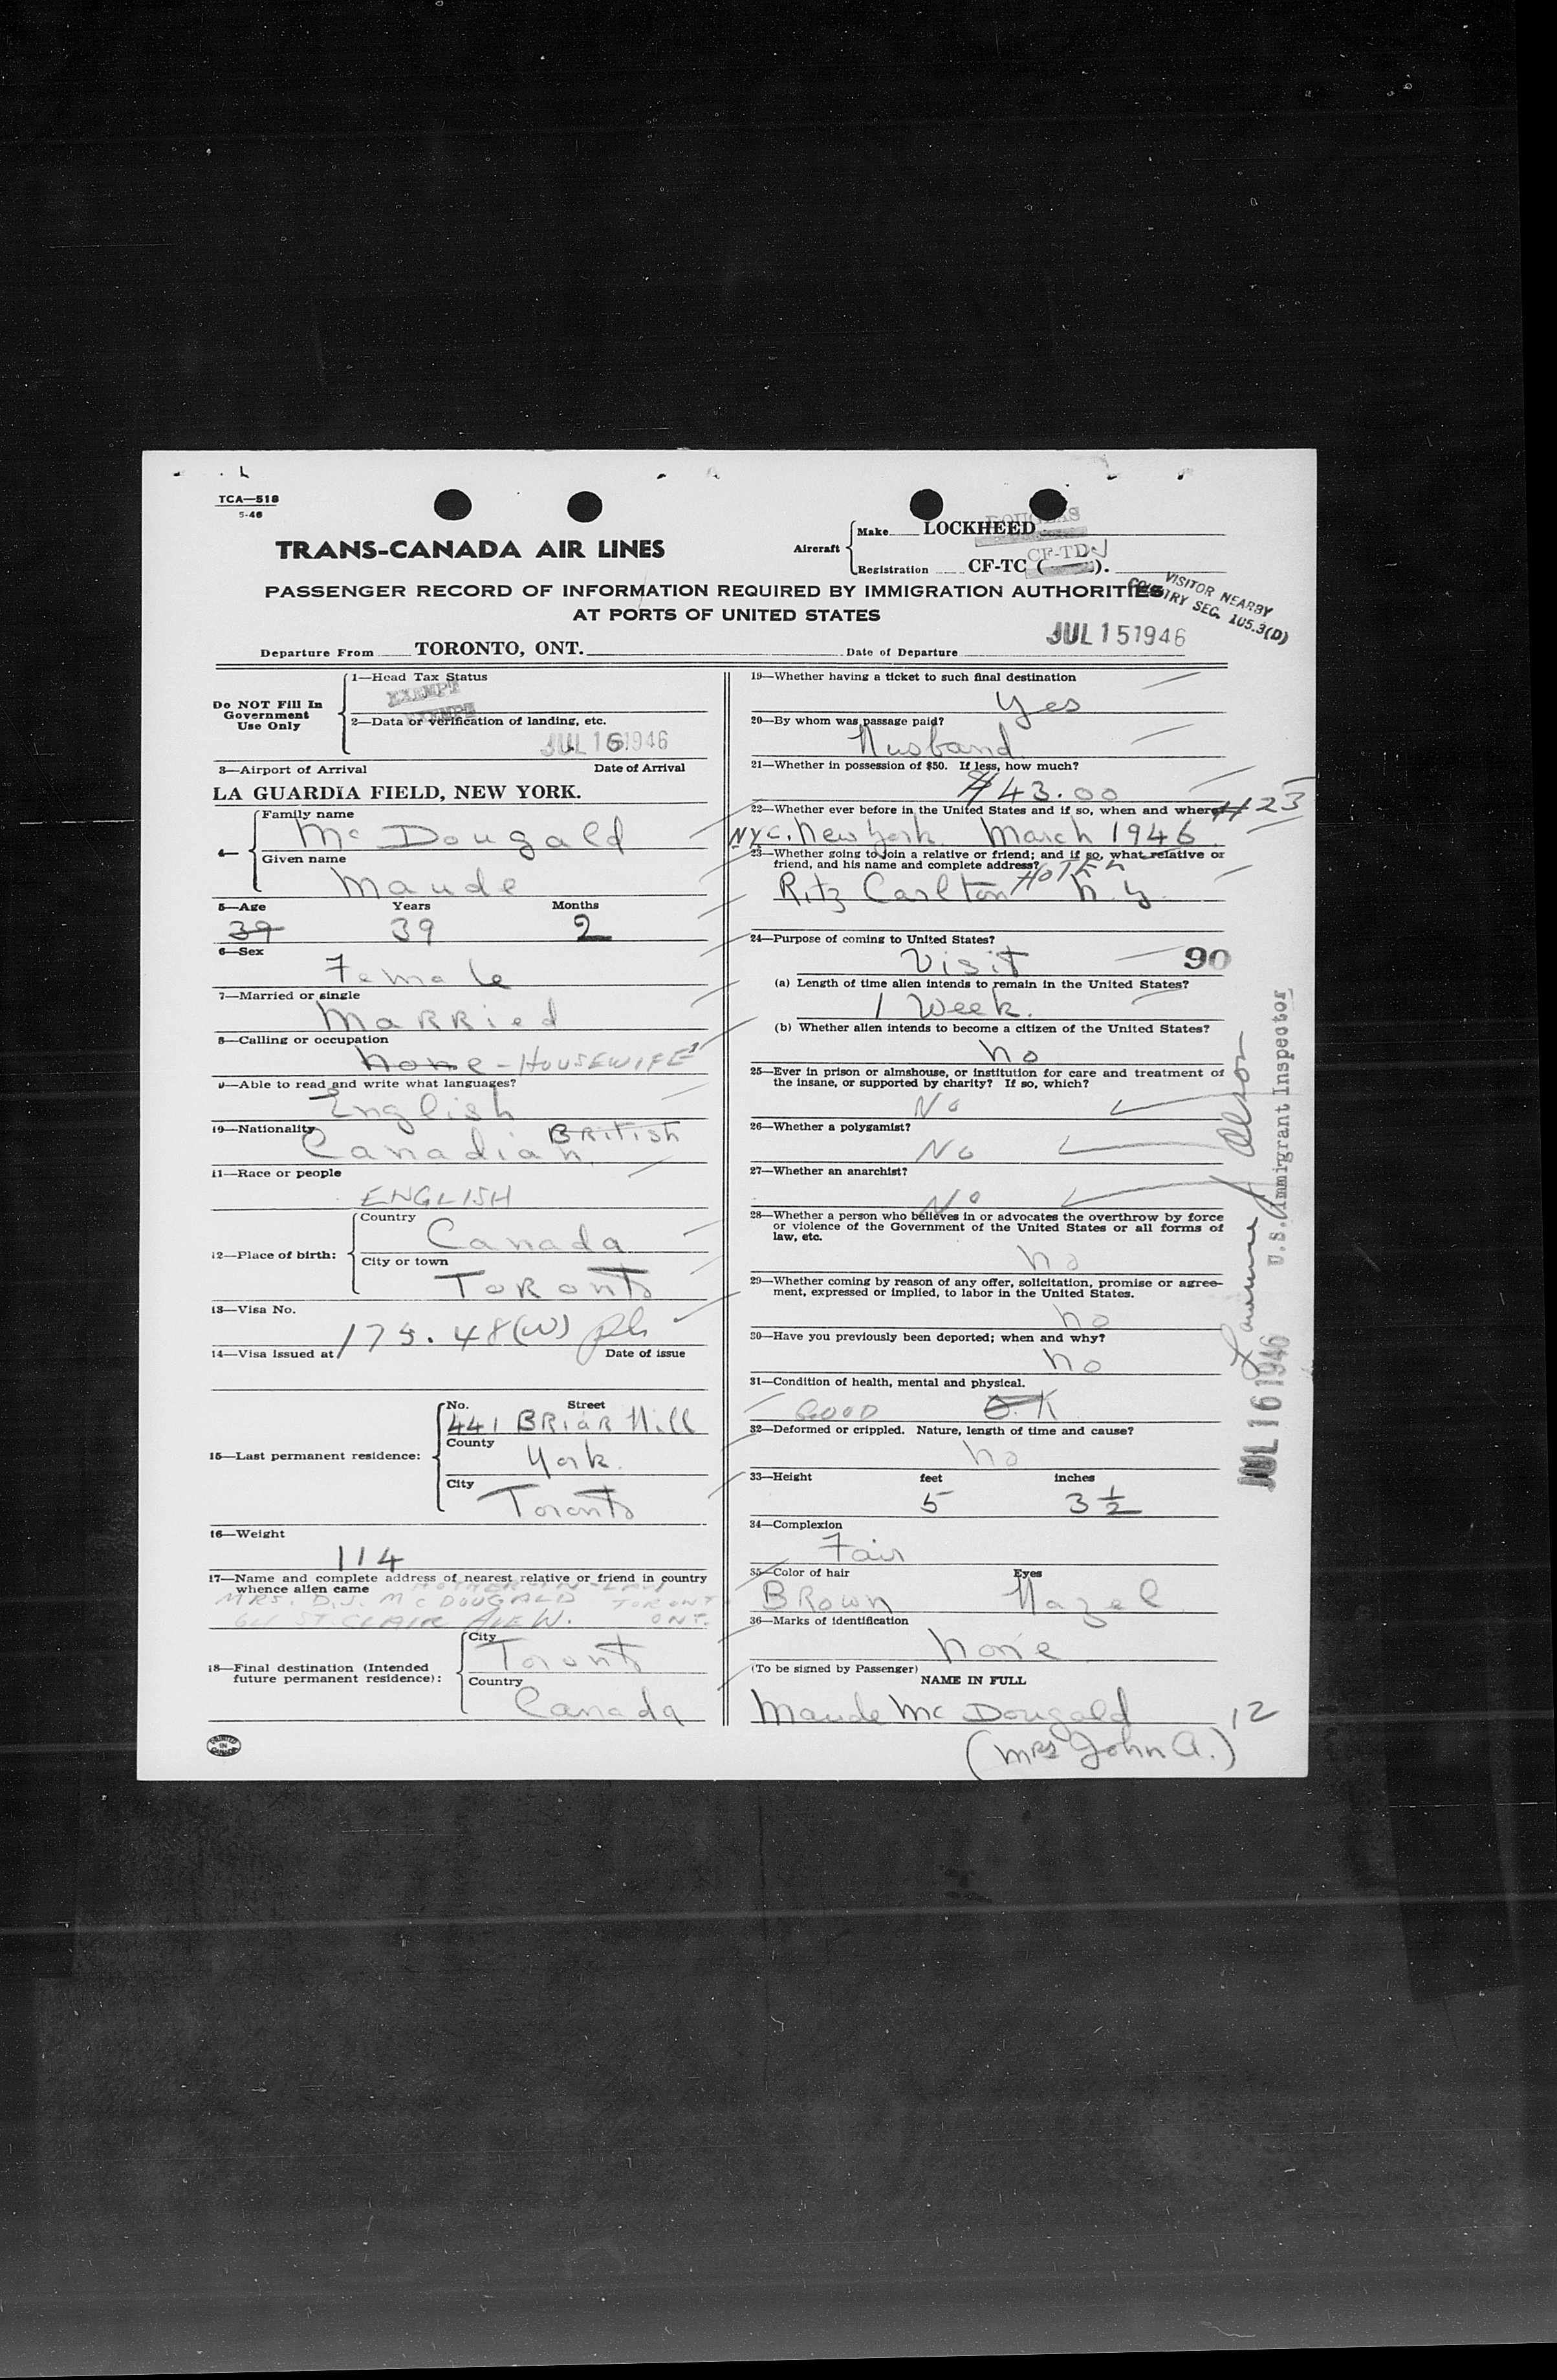 TCA—518
5-46
TRANS-CANADA AIR LINES
Aircraft
Make LOCKHEED DOUGLAS
Registration CF-TC ( ). CF-TD
PASSENGER RECORD OF INFORMATION REQUIRED BY IMMIGRATION AUTHORITIES
AT PORTS OF UNITED STATES
VISITOR NEARBY
COUNTRY SEC. 105.3(D)
Departure From TORONTO, ONT. Date of Departure JUL 15 1946
Do NOT Fill In
Government
Use Only
1—Head Tax Status
EXEMPT
EXEMPT
2—Data or verification of landing, etc.
JUL 16 1946
3—Airport of Arrival Date of Arrival
LA GUARDIA FIELD, NEW YORK.
4— Family name
McDougald
Given name
Maude
5—Age Years Months
39 39 2
6—Sex
Female
7—Married or single
MARRied
8—Calling or occupation
None - HOUSEWIFE
9—Able to read and write what languages?
English
10—Nationality
Canadian BRitish
11—Race or people
ENGLISH
12—Place of birth:
Country
Canada
City or town
ToRonto
13—Visa No.
175.48(W)
14—Visa issued at Date of issue
15—Last permanent residence:
No. Street
441 BRiaR Hill
County
York.
City
Toronto
16—Weight
114
17—Name and complete address of nearest relative or friend in country
whence alien came MOTHER-IN-LAW
MRS. D.J. McDOUGALD TORONTO
ST. CLAIR AVE W. ONT.
18—Final destination (Intended
future permanent residence):
City
Toronto
Country
Canada
PRINTED
IN
CANADA
19—Whether having a ticket to such final destination
Yes
20—By whom was passage paid?
Husband
21—Whether in possession of $50. If less, how much?
$43.00
22—Whether ever before in the United States and if so, when and where?
# 23
NYC. New York March 1946
23—Whether going to join a relative or friend; and if so, what relative or
friend, and his name and complete address?
Ritz Carlton HOTEL N.Y.
24—Purpose of coming to United States?
Visit 90
(a) Length of time alien intends to remain in the United States?
1 Week.
(b) Whether alien intends to become a citizen of the United States?
No
25—Ever in prison or almshouse, or institution for care and treatment of
the insane, or supported by charity? If so, which?
No
26—Whether a polygamist?
No
27—Whether an anarchist?
No
28—Whether a person who believes in or advocates the overthrow by force
or violence of the Government of the United States or all forms of
law, etc.
No
29—Whether coming by reason of any offer, solicitation, promise or agree-
ment, expressed or implied, to labor in the United States.
No
30—Have you previously been deported; when and why?
No
31—Condition of health, mental and physical.
GOOD O.K
32—Deformed or crippled. Nature, length of time and cause?
No
33—Height feet inches
5 3 1/2
34—Complexion
Fair
35—Color of hair Eyes
BRown Hazel
36—Marks of identification
None
(To be signed by Passenger)
NAME IN FULL
Maude McDougald
(MRS John A.)
12
JUL 16 1946
Lawrence A Olson
U.S. Immigrant Inspector